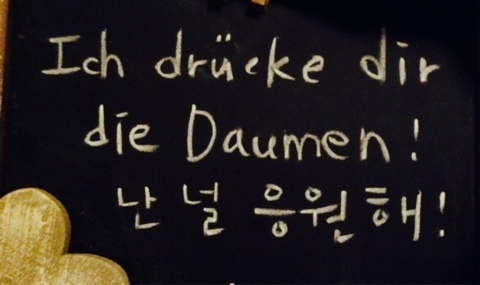 Ich drücke dir
die Daumen!
난 널 응원해!